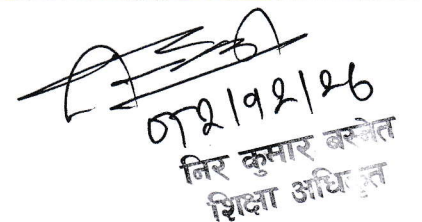 ०८२/१२/२६
निर कुमार बस्नेत
शिक्षा अधिकृत